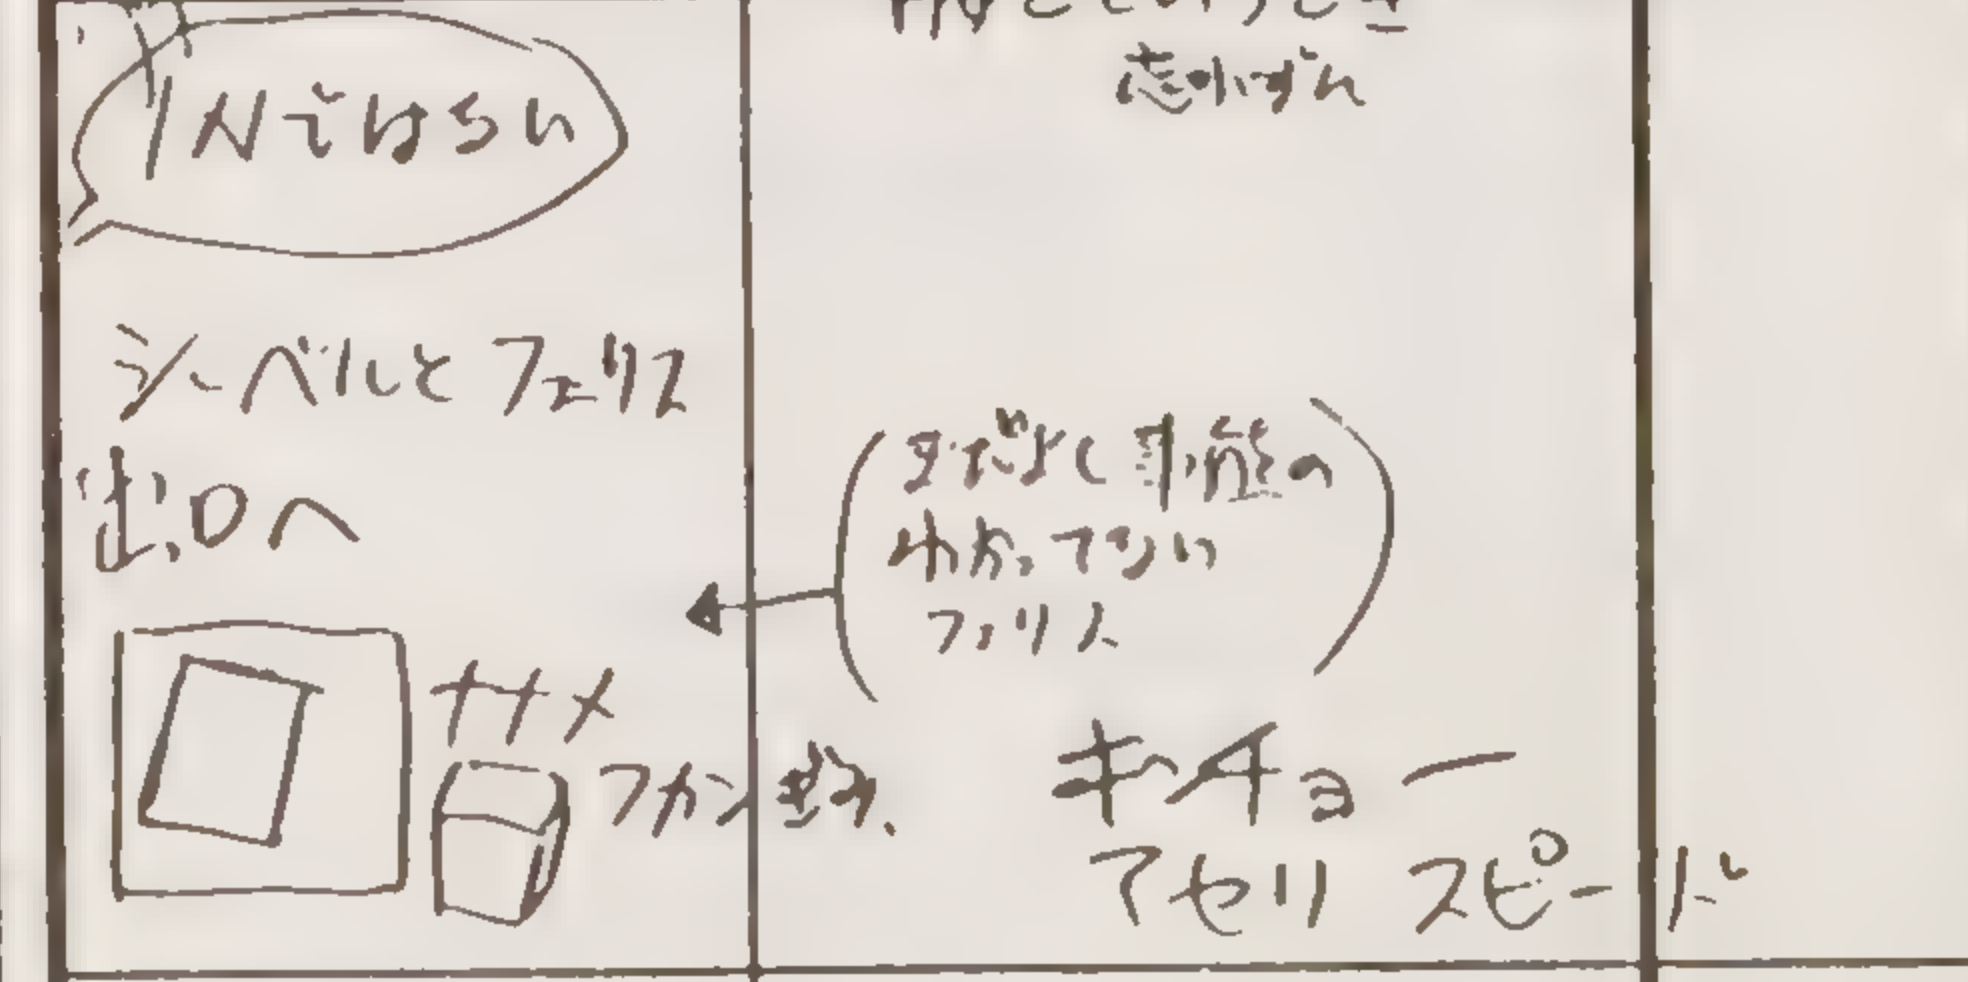 INではらい
シーベルとフェリス
出口へ
ナナメ
フカン ぎみ、
まだよく 状態の
わかってない
フェリス
キンチョー
アセリ スピード